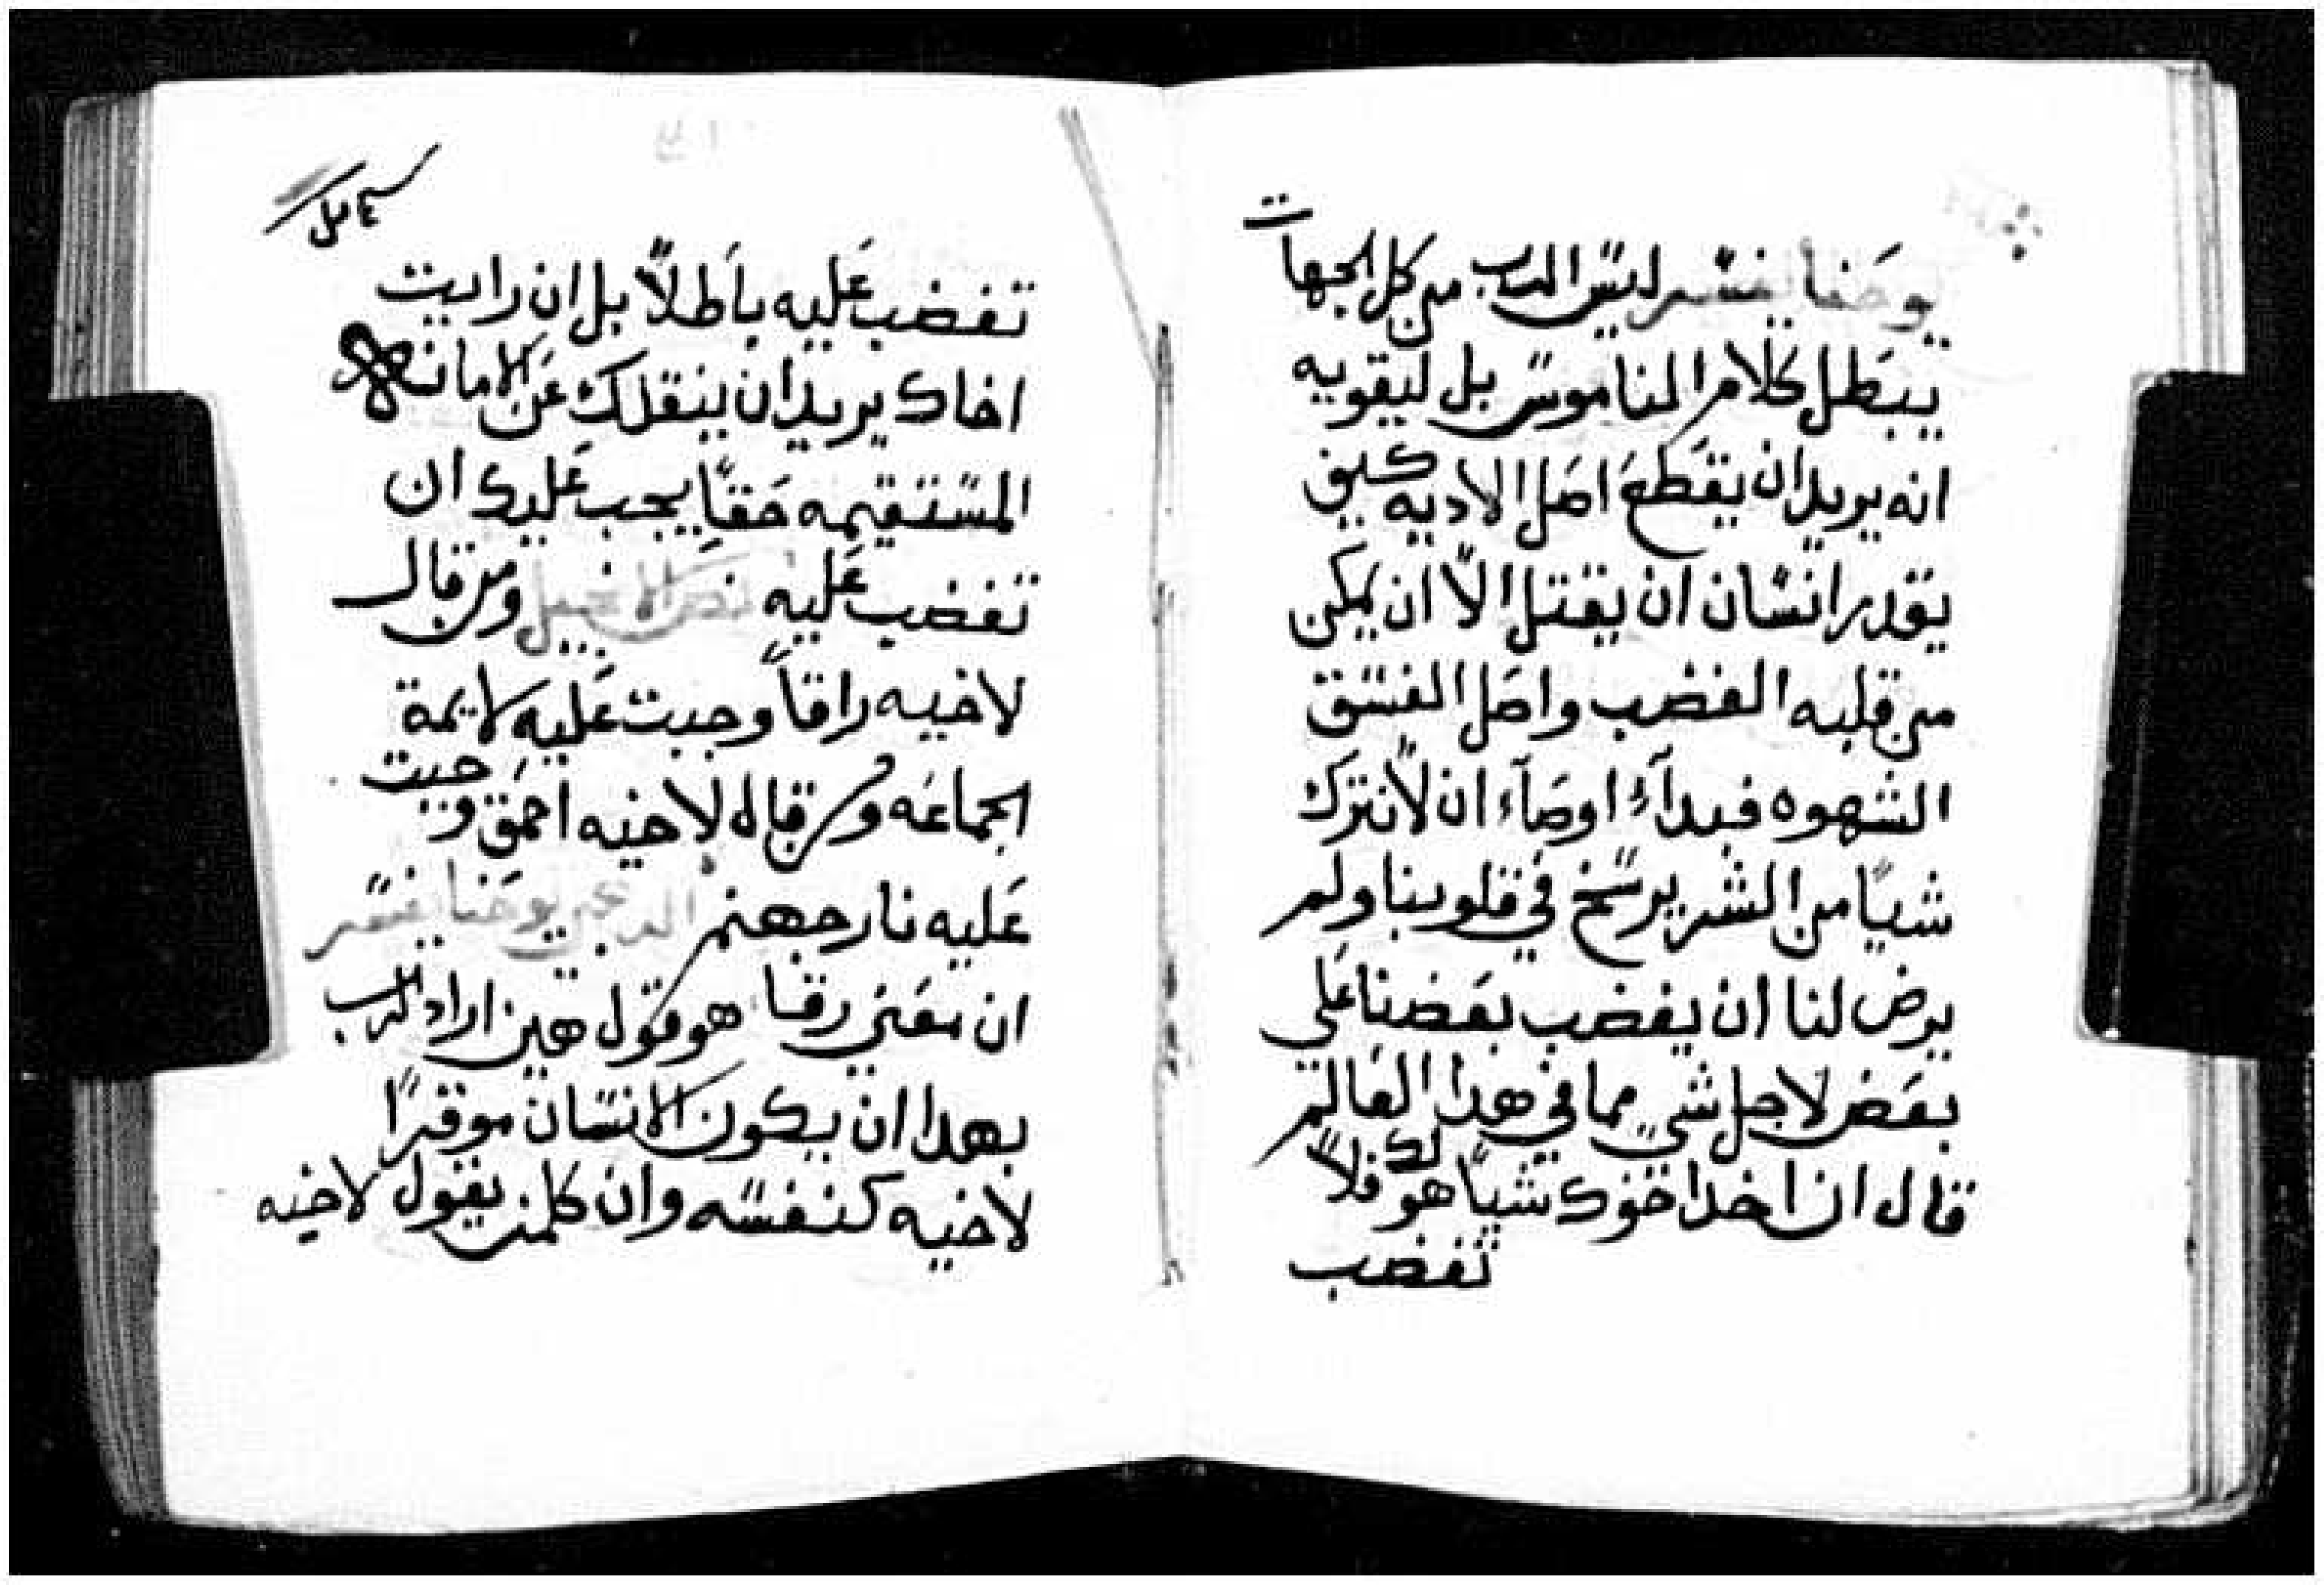 يوحنا يفسر ليس الرب من كل الجهات
يبطل كلام الناموس بل ليقويه
انه يريد ان يقطع اصل الاديه كيف
يقدر انسان ان يقتل الّا ان يكن
من قلبه الغضب واصل الفسق
الشهوه فبدآء اوصآء ان لا نترك
شيًا من الشر يرسخ في قلوبنا ولم
يرض لنا ان يغضب بعضنا على
بعض لاجل شي مما في هدا العالم
قال ان اخدا خوك شيًا هو لك فلا
تغضب
تغضب عليه باطلًا بل ان رايت
اخاك يريد ان ينقلك عن الامانه
المستقيمه حقًا يجب عليك ان
تغضب عليه نص الانجيل ومن قال
لاخيه راقا وجبت عليه لايمة
الجماعه ومن قال لاخيه احمق وجبت
عليه نار جهنم يوحنا يفسر
ان معني رقا هو قول هين اراد الرب
بهدا ان يكون الانسان موقرًا
لاخيه كنفسه وان كلمن يقول لاخيه